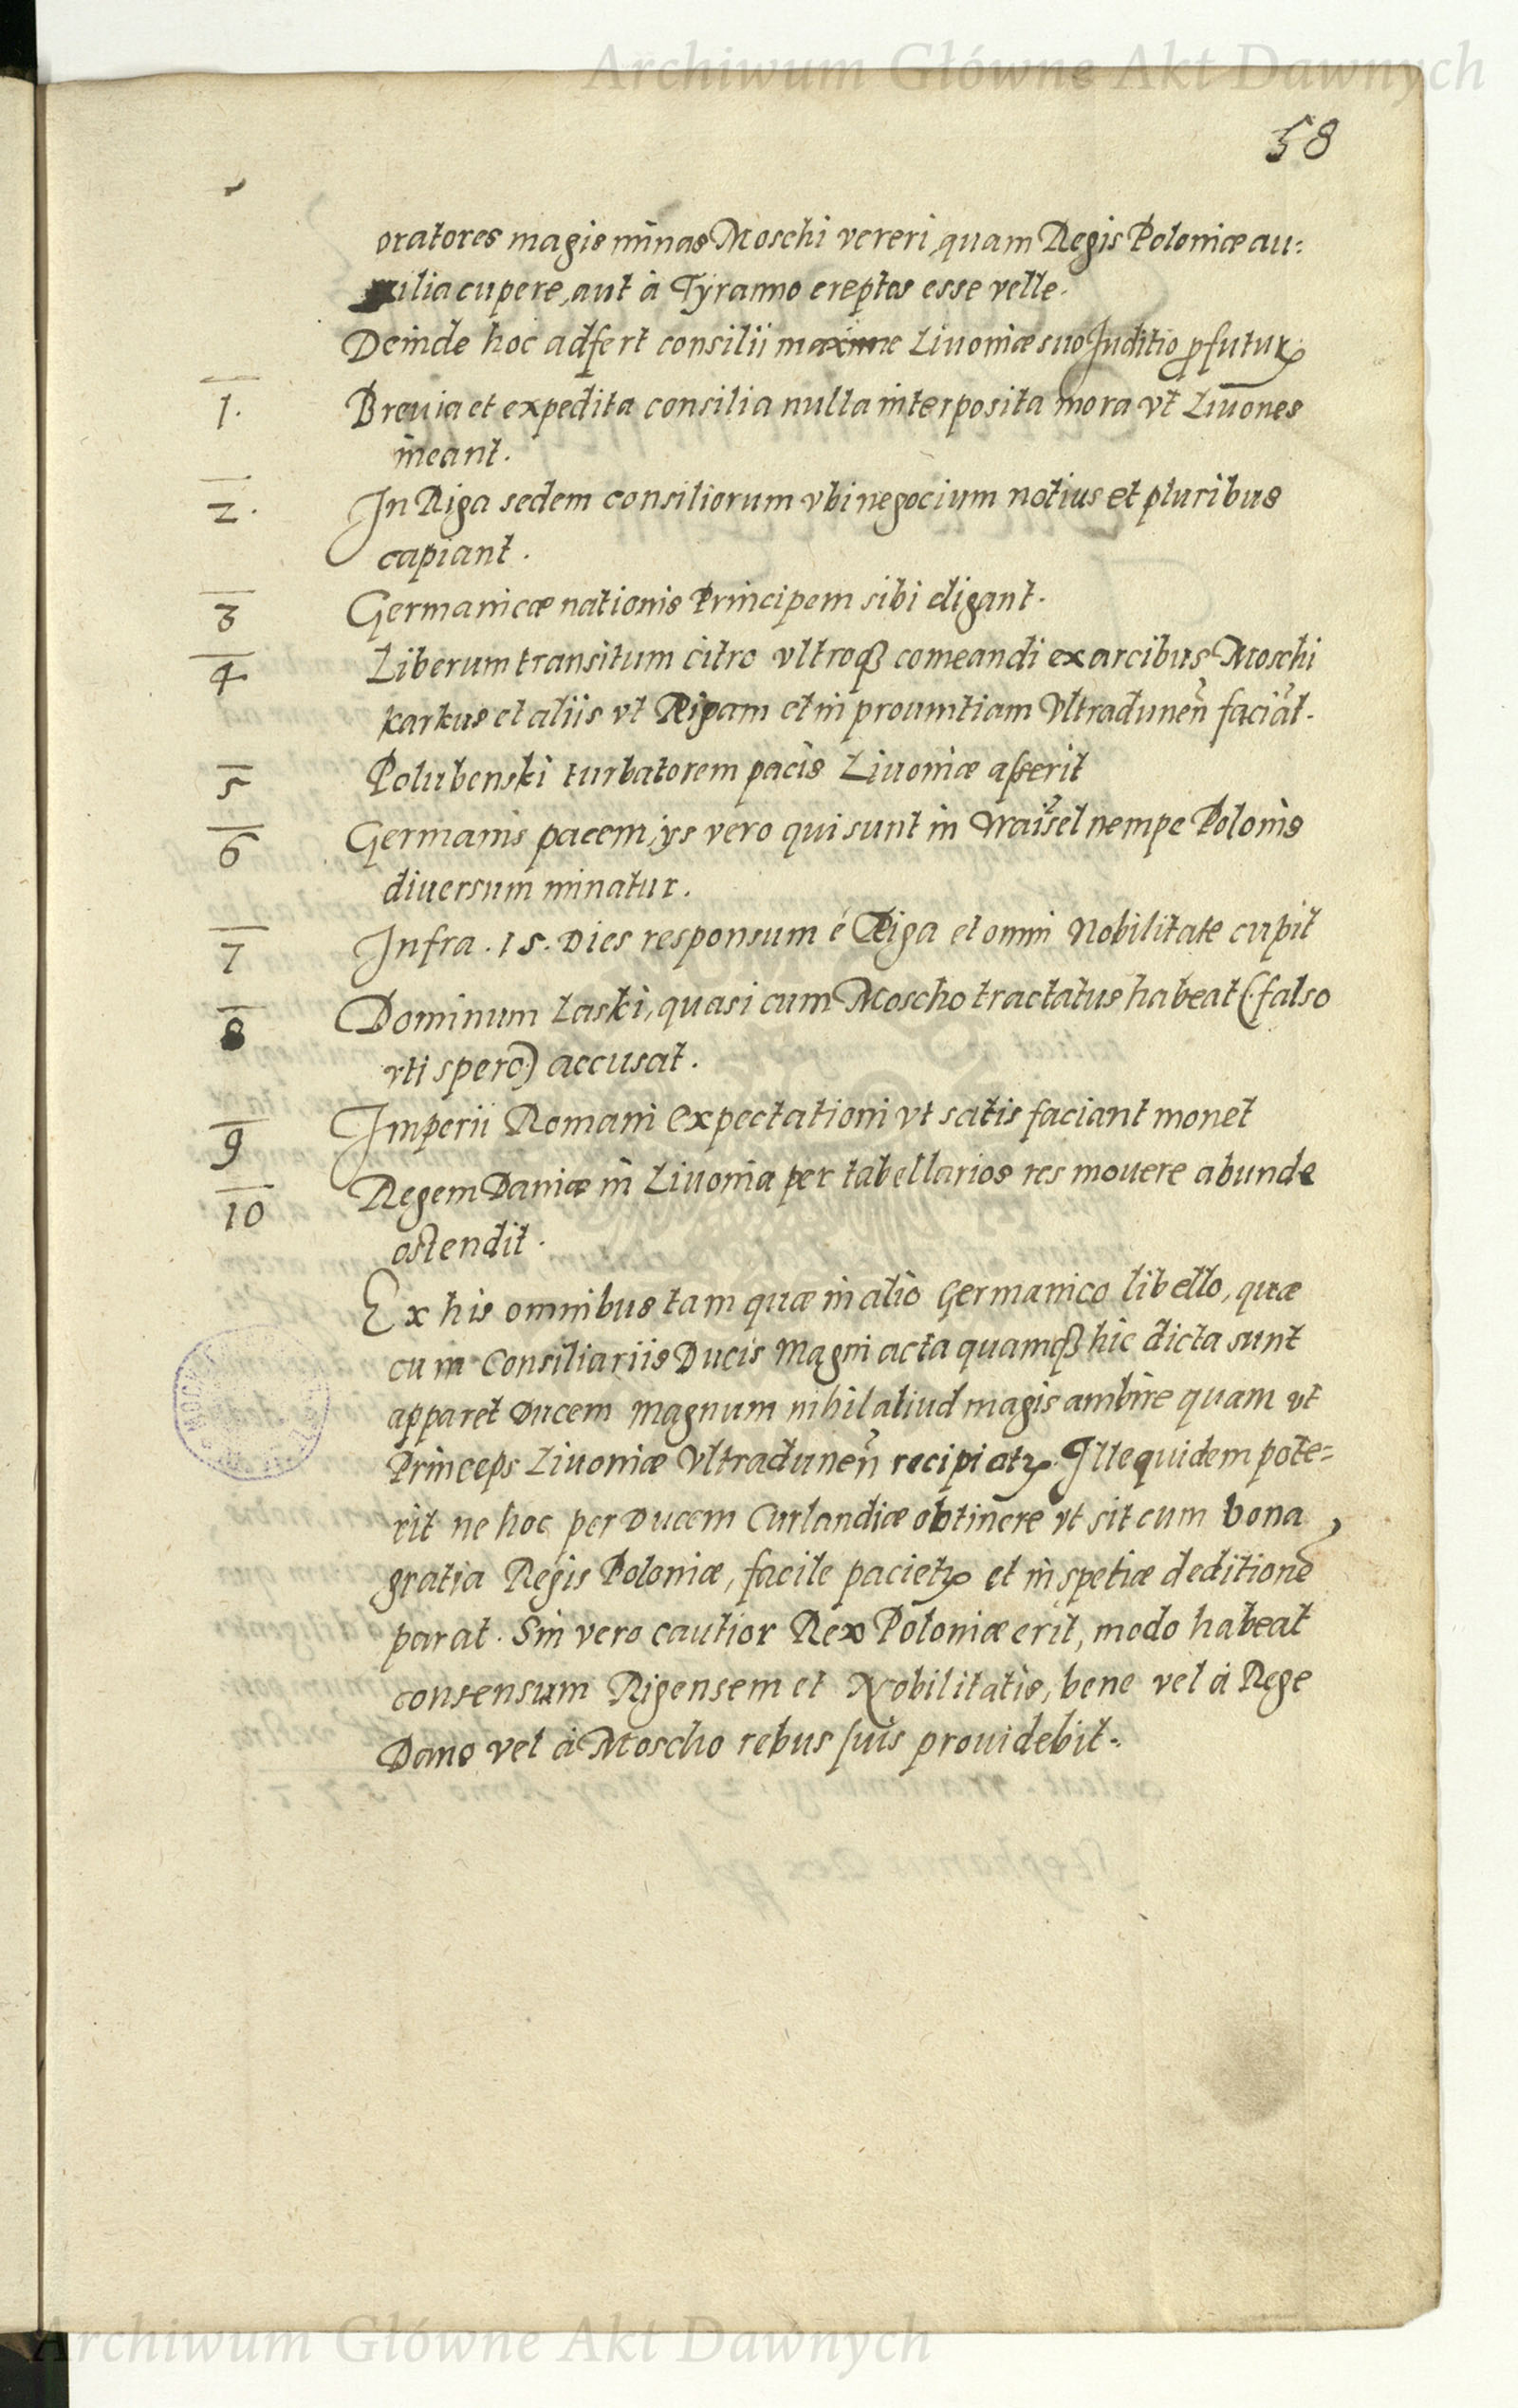 Archiwum Główne Akt Dawnych
58
oratores magis minas Moschi vereri, quam Regis Poloniæ au:
xilia cupere, aut à Tyranno ereptos esse velle.
Deinde hoc adfert consilii maxime Liuoniæ suo Juditio ꝓfuturꝝ
1. Breuia et expedita consilia nulla interposita mora vt Liuones
ineant.
2. In Riga sedem consiliorum vbi negocium notius et pluribus
capiant.
3 Germanicæ nationis Principem sibi eligant.
4 Liberum transitum citro vltroqꝫ comeandi ex arcibus Moschi
karkus et aliis vt Rigam et in prouintiam Vltradunen̄ faciāt.
5 Polubenski turbatorem pacis Liuoniæ asserit
6 Germanis pacem, ijs vero qui sunt in nempe Polonis
diuersum minatur.
7 Infra .15. Dies responsum é Riga et omni Nobilitate cupit
8 Dominum Laski, quasi cum Moscho tractatus habeat (falso
vti spero) accusat.
9 Imperii Romani expectationi vt satis faciant monet
10 Regem Daniæ in Liuonia per tabellarios res mouere abunde
ostendit.
Ex his omnibus tam quæ in alio Germanico libello, quæ
cum Consiliariis Ducis Magni acta quamqꝫ hic dicta sunt
apparet Ducem Magnum nihil aliud magis ambire quam vt
Princeps Liuoniæ Vltradunen̄ recipiatꝝ. Ille quidem pote=
rit ne hoc per Ducem Curlandiæ obtinere vt sit cum bona
gratia Regis Poloniæ, facile pacietꝝ et in spetiæ deditionē
parat. Sin vero cautior Rex Poloniæ erit, modo habeat
consensum Rigensem et Nobilitatis, bene vel à Rege
Dano vel à Moscho rebus suis prouidebit.
Archiwum Główne Akt Dawnych